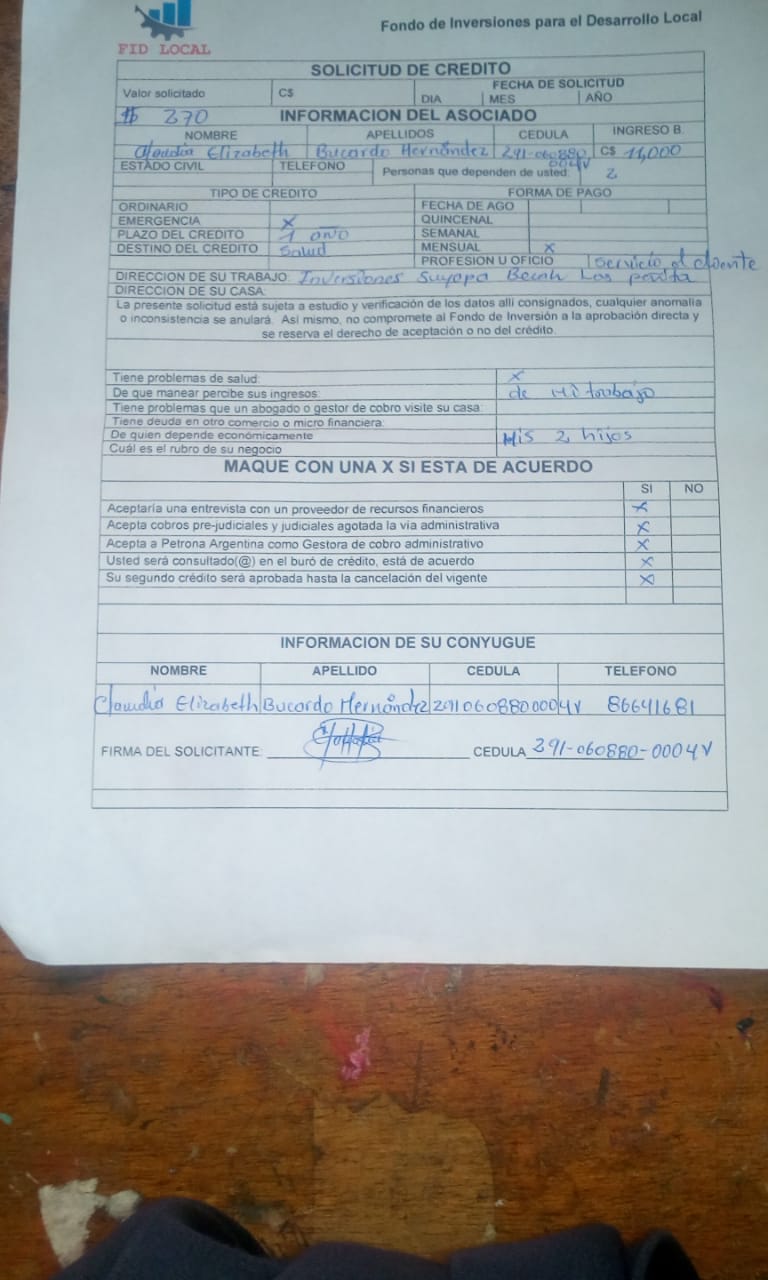 Fondo de Inversiones para el Desarrollo Local
FID LOCAL
SOLICITUD DE CREDITO
Valor solicitado C$ FECHA DE SOLICITUD
DIA MES AÑO
$ 370 INFORMACION DEL ASOCIADO
NOMBRE APELLIDOS CEDULA INGRESO B.
Claudia Elizabeth Bucardo Hernández 291-060880 0004V C$ 11,000
ESTADO CIVIL TELEFONO Personas que dependen de usted: 2
TIPO DE CREDITO FORMA DE PAGO
ORDINARIO FECHA DE AGO
EMERGENCIA X QUINCENAL
PLAZO DEL CREDITO 1 año SEMANAL
DESTINO DEL CREDITO Salud MENSUAL X
PROFESION U OFICIO servicio al cliente
DIRECCION DE SU TRABAJO: Inversiones Suyapa Las
DIRECCION DE SU CASA:
La presente solicitud está sujeta a estudio y verificación de los datos alli consignados, cualquier anomalia
o inconsistencia se anulará. Así mismo, no compromete al Fondo de Inversión a la aprobación directa y
se reserva el derecho de aceptación o no del crédito.
Tiene problemas de salud: X
De que manear percibe sus ingresos: de Mi trabajo
Tiene problemas que un abogado o gestor de cobro visite su casa:
Tiene deuda en otro comercio o micro financiera:
De quien depende económicamente Mis 2 hijos
Cuál es el rubro de su negocio
MAQUE CON UNA X SI ESTA DE ACUERDO
SI NO
Aceptaría una entrevista con un proveedor de recursos financieros X
Acepta cobros pre-judiciales y judiciales agotada la vía administrativa X
Acepta a Petrona Argentina como Gestora de cobro administrativo X
Usted será consultado(@) en el buró de crédito, está de acuerdo X
Su segundo crédito será aprobada hasta la cancelación del vigente X
INFORMACION DE SU CONYUGUE
NOMBRE APELLIDO CEDULA TELEFONO
Claudia Elizabeth Bucardo Hernández 2910608800004V 86641681
FIRMA DEL SOLICITANTE: CEDULA 291-060880-0004V